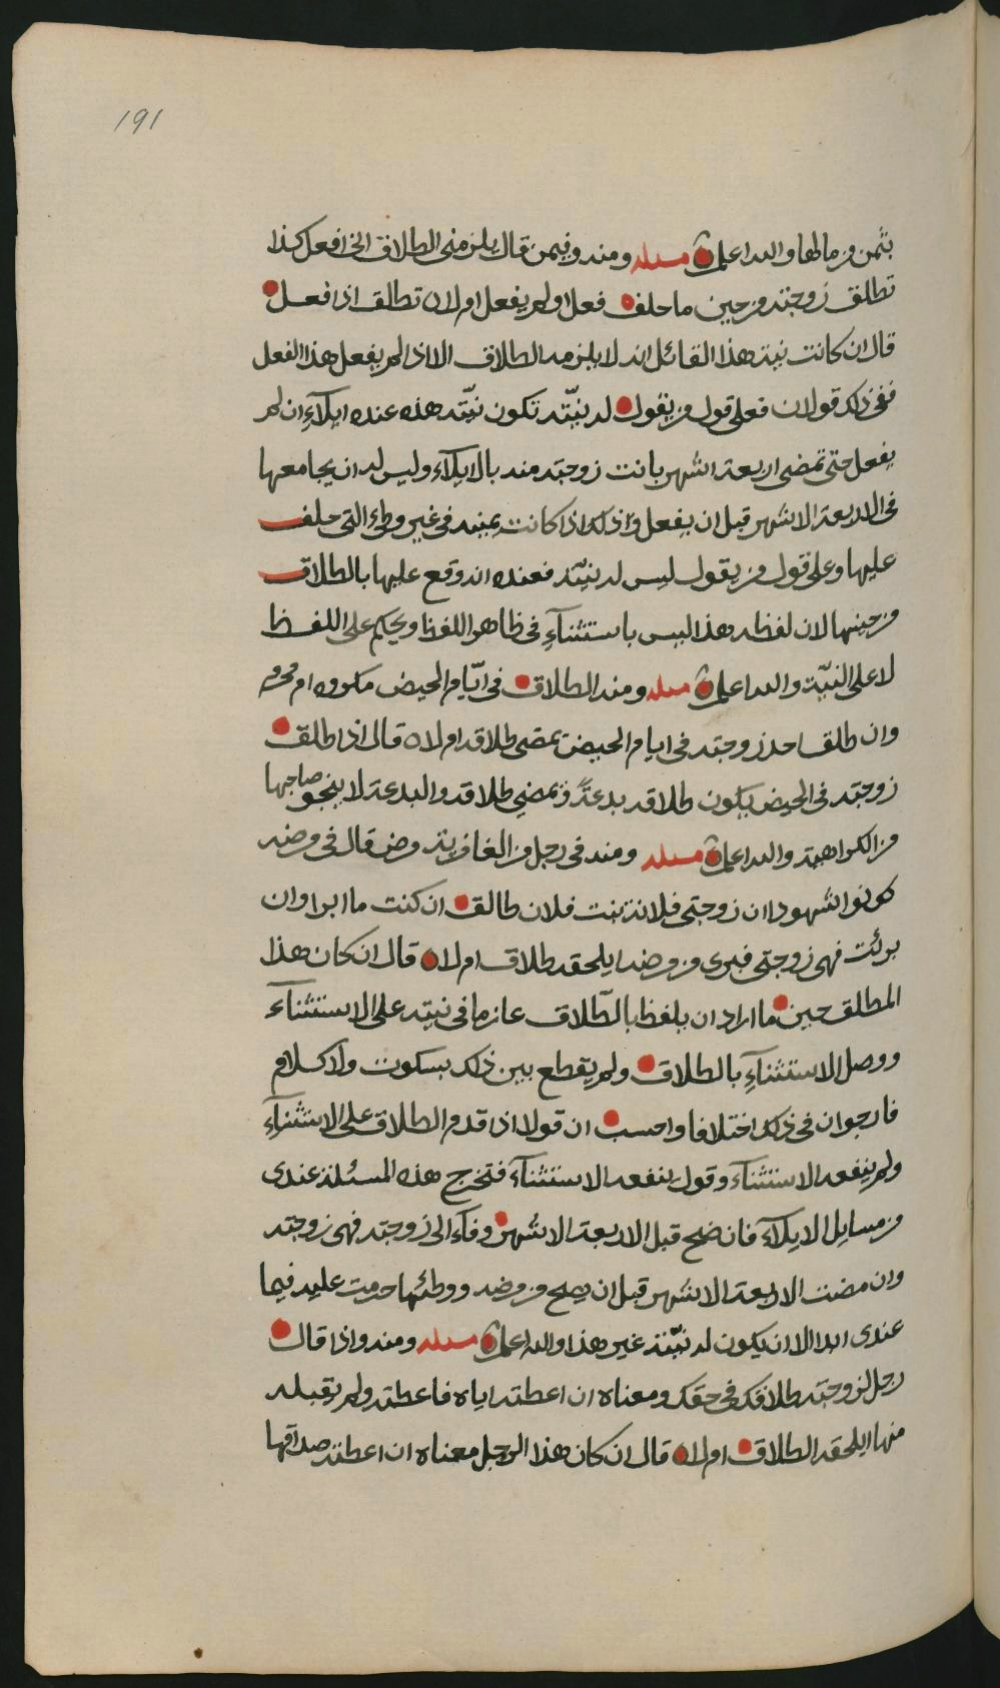 191
بثمن من مالها والله اعلم مسئله ومنه وفيمن قال يلزمني الطلاق اني افعل كذا
تطلق زوجته من حين ما حلف فعل او لم يفعل ام لا ان تطلق اذا فعل
قال ان كانت نية هذا القائل انه لا يلزمه الطلاق الا اذا لم يفعل هذا الفعل
ففي ذلك قولان فعلى قول من يقول له نيّته تكون نيّته هذه عنده ايلآءِ ان لم
يفعل حتى تمضي اربعة اشهر بانت زوجته منه بالايلآء وليس له ان يجامعها
في الاربعة الاشهر قبل ان يفعل وذلك اذا كانت يمينه في غير وطئ التي حلف
عليها وعلى قول من يقول ليس له نيّته فعنده انه وقع عليها بالطلاق
من حينها لان لفظه هذا ليس باستثنآءِ في ظاهر اللفظ ويحكم على اللفظ
لا على النيّة والله اعلم مسئله ومنه الطلاق في ايّام الحيض مكروه ام محروم
وان طلق احد زوجته في ايام الحيض يمضي طلاقه ام لا قال اذا طلق
زوجته في الحيض يكون طلاقه بدعةً ويمضي طلاقه والبدعة لا ينجو صاحبها
من الكراهية والله اعلم مسئله ومنه في رجل من الغافرية مرض قال في مرضه
كونوا شهودا ان زوجتي فلانة بنت فلان طالق ان كنت ما ابرا وان
برئت فهي زوجتي فبرى من مرضه ايلحقه طلاق ام لا قال ان كان هذا
المطلق حين ما اراد ان يلفظ بالطّلاق عازما في نيته على الاستثنآء
ووصل الاستثنآءِ بالطلاق ولم يقطع بين ذلك بسكوت ولا كلام
فارجو ان في ذلك اختلافا واحسب ان قولا اذا قدم الطلاق على الاستثنآءِ
ولم ينفعه الاستثنآء وقول ينفعه الاستثنآء فتخرج هذه المسئلة عندى
من مسايل الايلآء فان صح قبل الاربعة الاشهر وفآء الى زوجته فهى زوجته
وان مضت الاربعة الاشهر قبل ان يصح من مرضه ووطئها حرمت عليه فيما
عندى ابدا الا ان يكون له نيّة غير هذا والله اعلم مسئله ومنه واذا قال
رجل لزوجته طلاقك في حقك ومعناه ان اعطته اياه فاعطته ولم يقبله
منها ايلحقه الطلاق ام لا قال ان كان هذا الرجل معناه ان اعطته صداقها